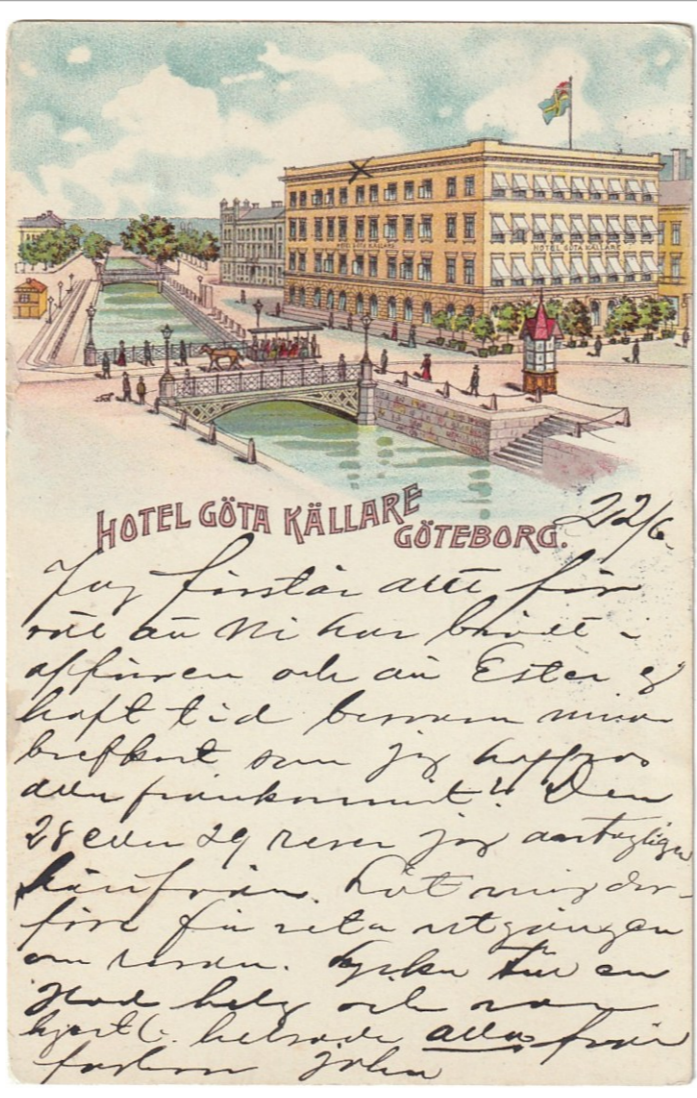 HOTEL GÖTA KÄLLARE
HOTEL GÖTA KÄLLARE
HOTEL GÖTA KÄLLARE
GÖTEBORG.
22/6.
Jag förstår att för
att Ni har brådt i
affären och att Ester ej
haft tid besvara mina
brefkort som jag hoppas
alla framkommit? Den
28 eller 29 reser jag antagligen
härifrån. Låt mig der-
före få veta utgången
om resan.
Glad helg och var
hjertl. helsade alla från
farbror John